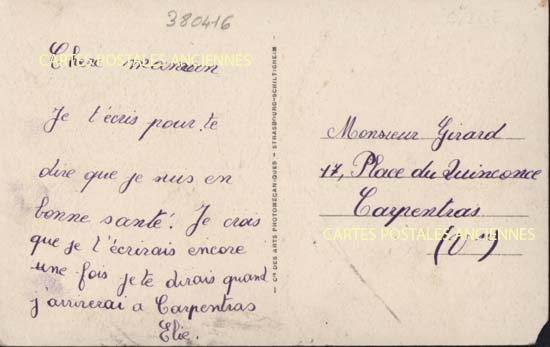 380416
Chere maman
CARTES POSTALES ANCIENNES
Je t'écris pour te
dire que je suis en
bonne santé. Je crois
que je t'écrirais encore
une fois je te dirais quand
j'arriverai a Carpentras
Elie.
— Cie DES ARTS PHOTOMECANIQUES — STRASBOURG-SCHILTIGHEIM —
Monsieur Girard
17, Place du Quinconce
Carpentras
CARTES POSTALES ANCIENNES